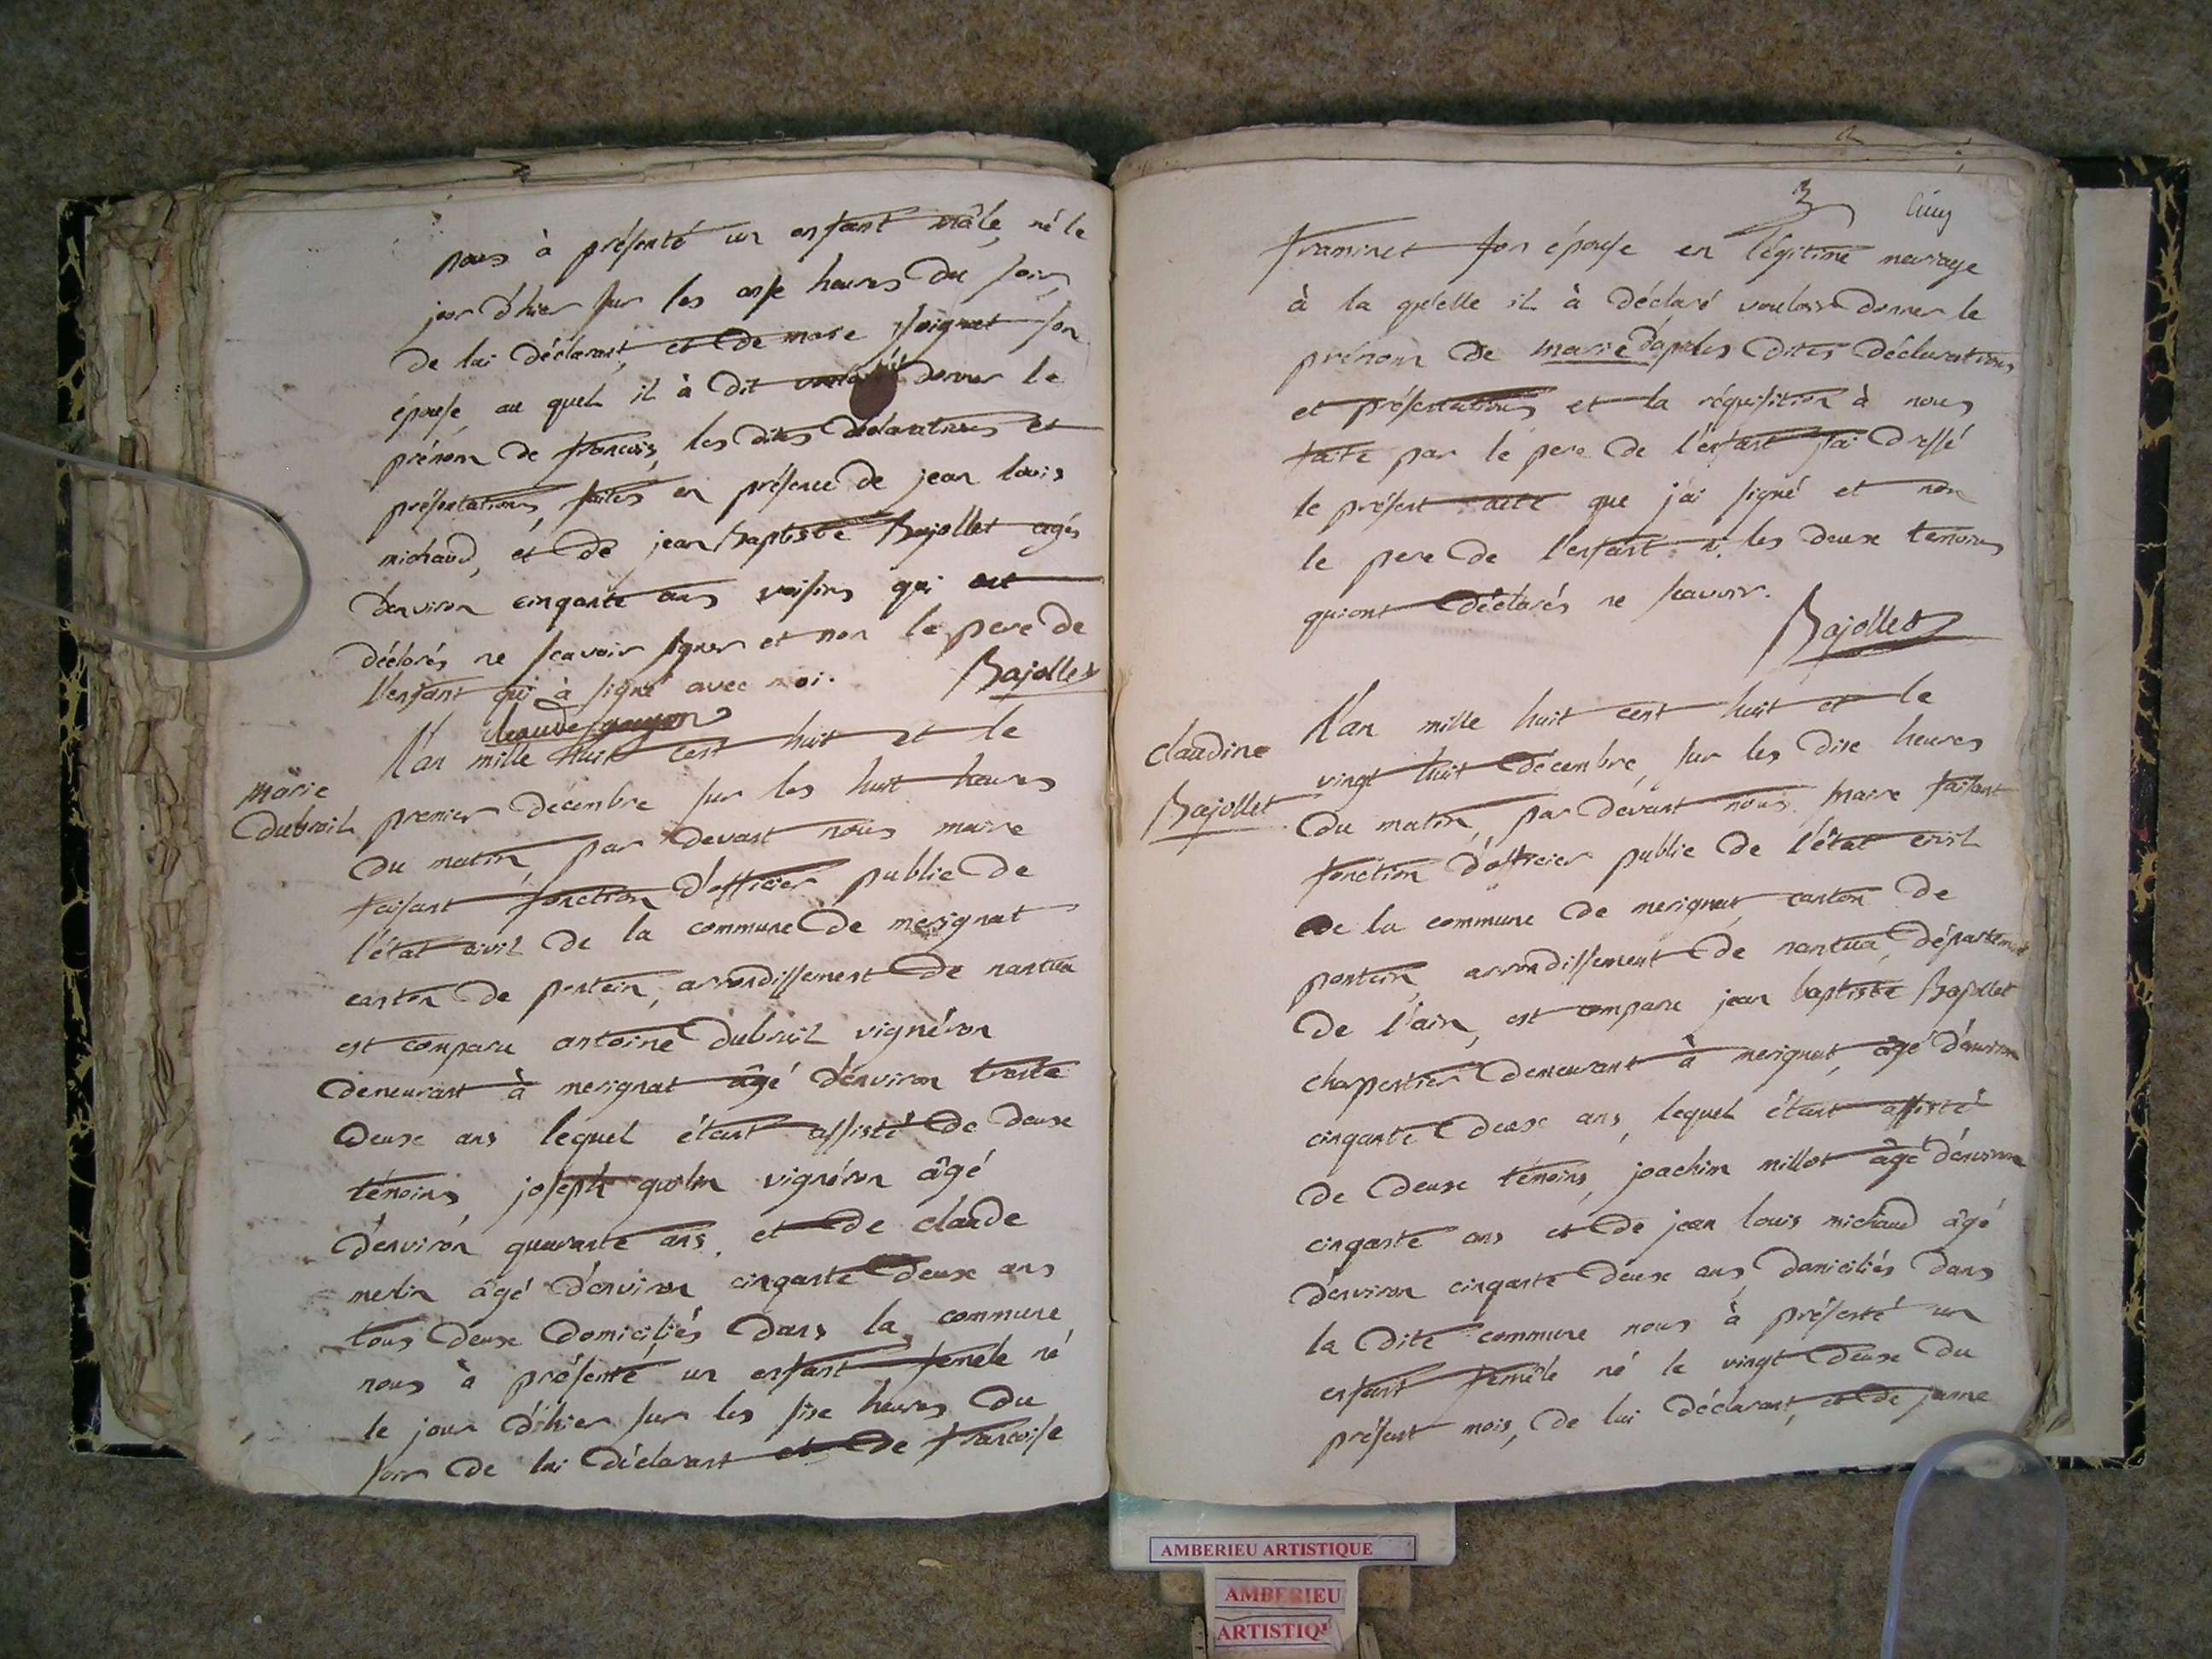 nous à présenté un enfant mâle, né le
jour d'hier sur les onse heures du soir,
de lui déclarant, et de marie son
épouse, au quel il à dit donner le
prénom de francois, les dites déclarations et
présentations, faites en présence de jean louis
michaud, et de jean baptiste Bajollet agés
d'environ cinqante ans voisins qui ont
déclarés ne scavoir signer et non le pere de
l'enfant qui à signé avec moi. Bajollet
claude
marie
dubreil
l'an mille huit cent huit et le
premier décembre sur les huit heures
du matin, par devant nous maire
faisant fonction d'officier public de
l'état civil de la commune de merignat
canton de poncin, arrondissement de nantua
est comparu antoine dubreil vignéron
demeurant à merignat âgé d'énviron trente
deuse ans lequel étant assisté de deuse
témoins, joseph vignéron âgé
d'énviron quarante ans, et de claude
merlin âgé d'énviron cinqante deuse ans
tous deuse domiciliés dans la commune
nous à présenté un enfant femele né
le jour d'hier sur les sise heures du
soir de lui déclarant et de francoise
3
framinet son épouse en légitime mariage
à la quelle il à déclaré vouloir donner le
prénom de marie d'après les dites déclarations
et présentations et la réquisition à nous
faite par le pere de l'enfant j'ai dressé
le présent acte que j'ai signé et non
le pere de l'enfant n. les deuse temoins
qui ont déclarés ne scavoir.
Bajollet
claudine
Bajollet
l'an mille huit cent huit et le
vingt huit décembre, sur les dise heures
du matin, par devant nous maire faisant
fonction d'officier public de l'êtat civil
de la commune de merignat canton de
poncin, arrondissement de nantua, département
de l'ain, est comparu jean baptiste Bajollet
charpentier demeurant à merignat, âgé d'énviron
cinqante deuse ans, lequel étant assisté
de deuse témoins, joachim millot âgé d'énviron
cinqante ans et de jean louis michaud âgé
d'énviron cinqante deuse ans, domiciliés dans
la dite commune nous à présenté un
enfant femêle né le vingt deuse du
présent mois, de lui déclarant, et de janne
AMBERIEU ARTISTIQUE
AMBERIEU
ARTISTIQ